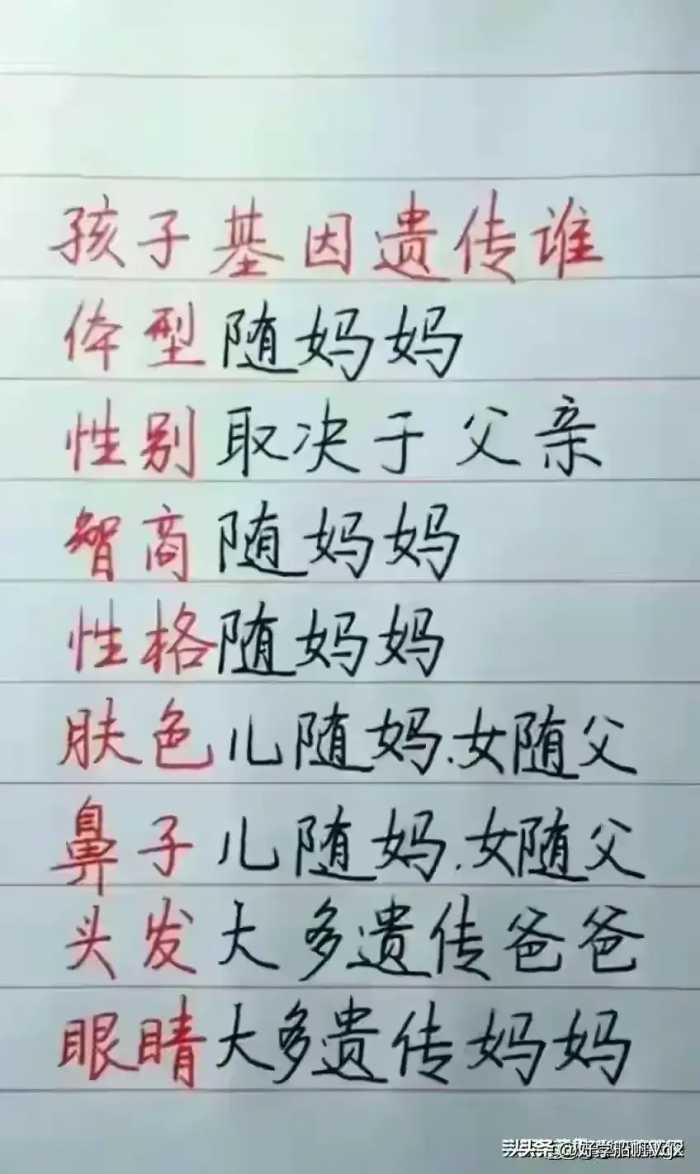 孩子基因遗传谁
体型随妈妈
性别取决于父亲
智商随妈妈
性格随妈妈
肤色儿随妈.女随父
鼻子儿随妈.女随父
头发大多遗传爸爸
眼睛大多遗传妈妈